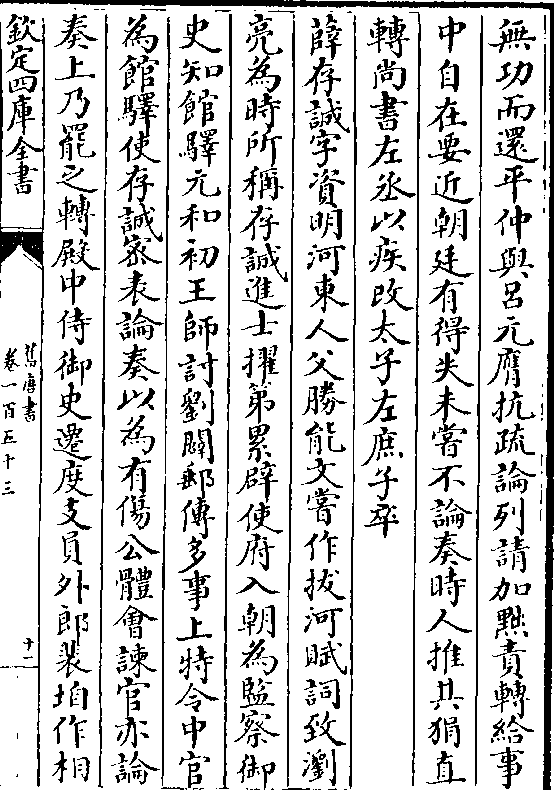 無功而還平仲與呂元膺抗疏論列請加黜責轉給事
中自在要近朝廷有得失未嘗不論奏時人推其狷直
轉尚書左丞以疾改太子左庶子卒
薛存誠字資明河東人父勝能文嘗作拔河賦詞致瀏
亮為時所稱存誠進士擢第累辟使府入朝為監察御
史知館驛元和初王師討劉闢郵傳多事上特令中官
為館驛使存誠密表論奏以為有傷公體會諫官亦論
奏上乃罷之轉殿中侍御史遷度支員外郎裴垍作相
欽定四庫全書
舊唐書
卷一百五十三
十一